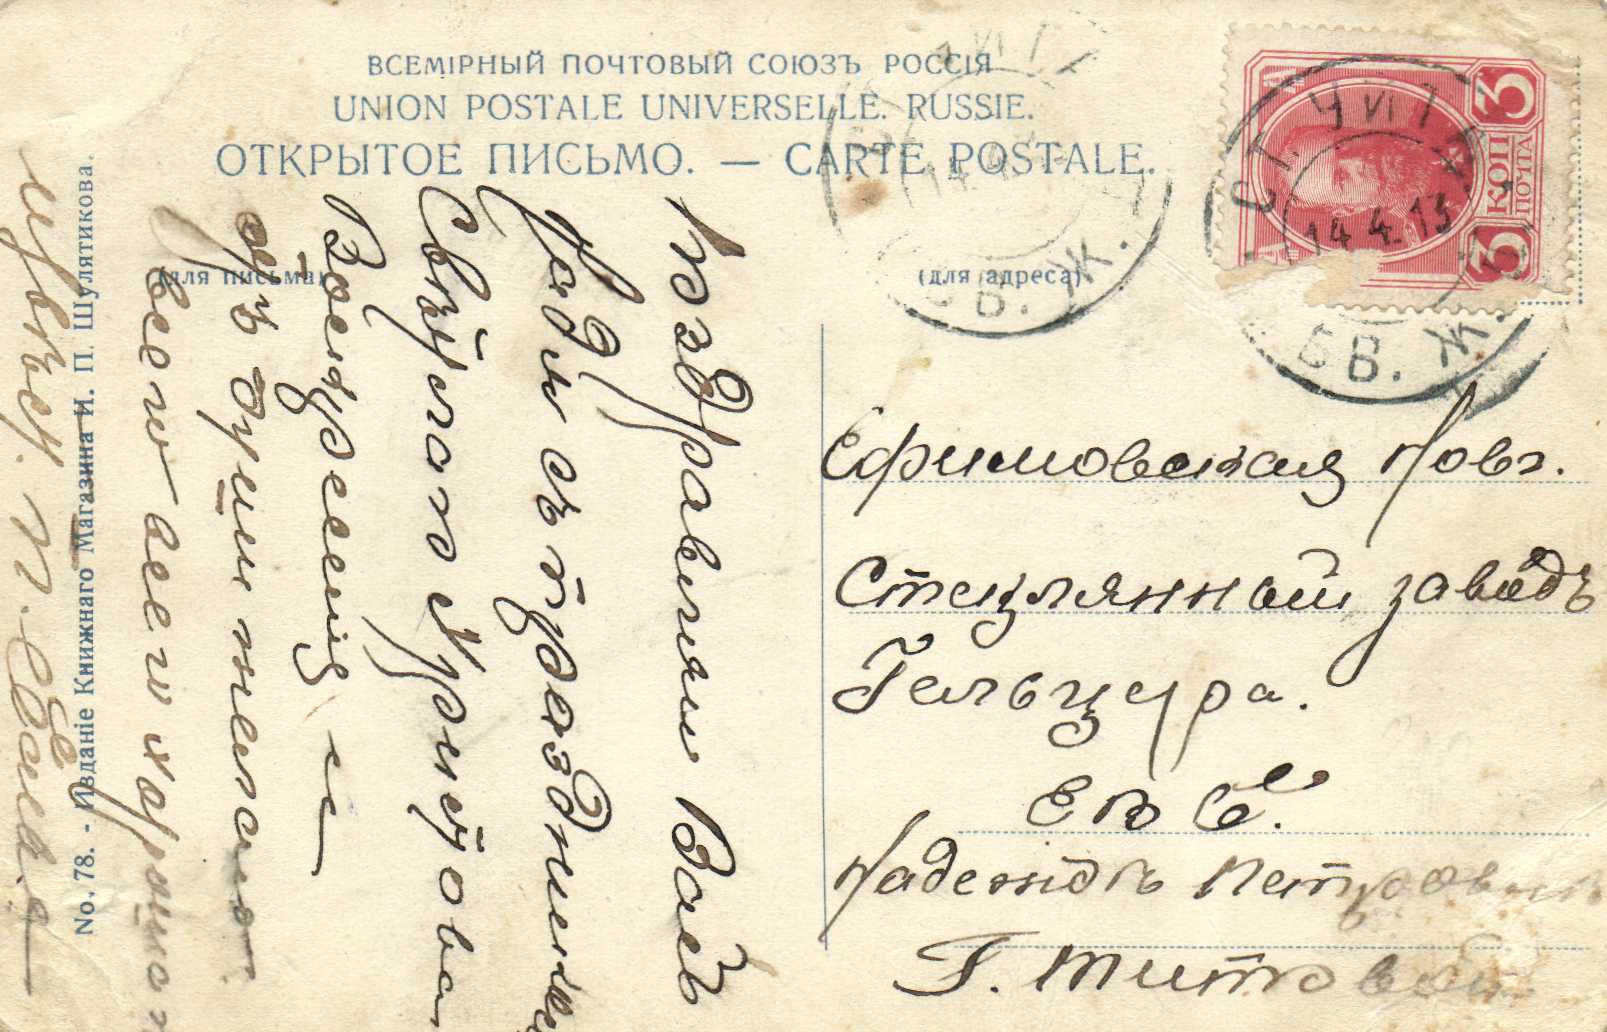 ВСЕМІРНЫЙ ПОЧТОВЫЙ СОЮЗЪ РОССІЯ
UNION POSTALE UNIVERSELLE. RUSSIE.
ОТКРЫТОЕ ПИСЬМО. — CARTE POSTALE.
(для письма)
(для адреса)
3 КОП 3
ПОЧТА
СТ. ЧИТА
14.4.13
ЗВ. Ж.
Поздравляю Васъ
Надя съ праздникомъ
Свѣтлого Христова
Воскресенія и
отъ души желаю
всего всего хорошаго
Ефимовская Новг.
Стеклянный заводъ
Гельцера.
Ея В.
Надеждѣ Петровнѣ
Г. Титковой
No. 78. - Изданіе Книжнаго Магазина И. П. Шулятикова.